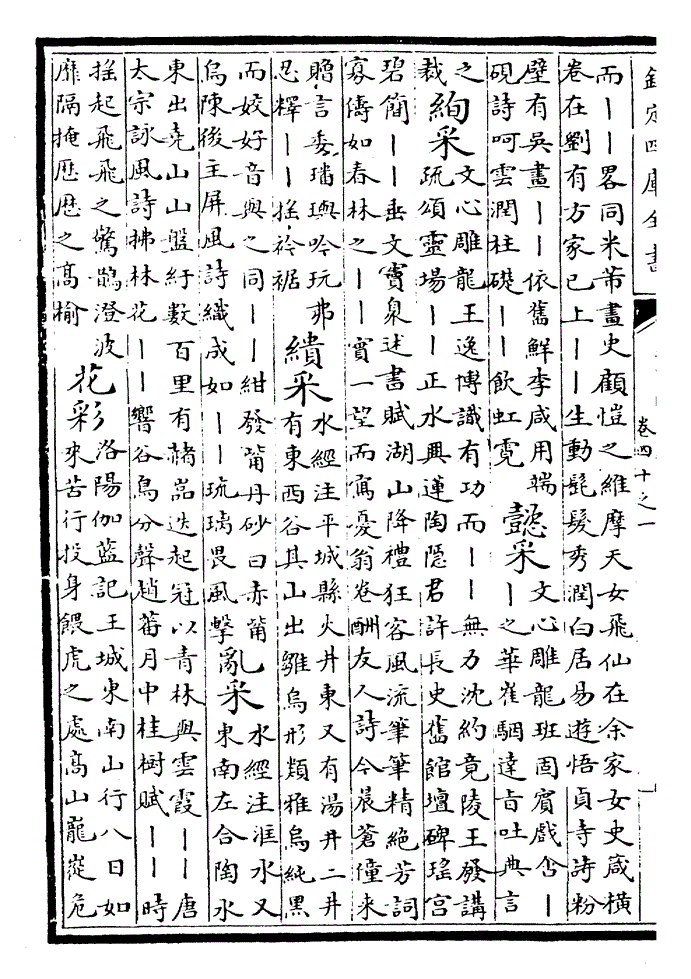 欽定四庫全書
卷四十之一
而丨丨畧同米芾畫史顧愷之維摩天女飛仙在余家女史箴橫
卷在劉有方家已上丨丨生動髭髮秀潤白居易遊悟貞寺詩粉
壁有吳畫丨丨依舊鮮李咸用端
硯詩呵雲潤柱礎丨丨飲虹霓
懿采
文心雕龍班固賓戲含丨
丨之華崔駰達旨吐典言
之
裁
絢采
文心雕龍王逸博識有功而丨丨無力沈約竟陵王發講
疏頌靈場丨丨正水興蓮陶隱君許長史舊館壇碑瑤宮
碧簡丨丨垂文竇臮述書賦湖山降禮狂客風流筆筆精絕芳詞
寡儔如春林之丨丨實一望而寫憂翁卷酬友人詩今晨蒼僮来
贈言委璠璵吟玩弗
忍釋丨丨搖衿裾
繢采
水經注平城縣火井東又有湯井二井
有東西谷其山出雛烏形類雅烏純黑
而姣好音與之同丨丨紺發觜丹砂曰赤觜
烏陳後主屏風詩織成如丨丨琉璃畏風擊
亂采
水經注洭水又
東南左合陶水
東出堯山山盤紆數百里有赭嵓迭起冠以青林與雲霞丨丨唐
太宗詠風詩拂林花丨丨響谷鳥分聲趙蕃月中桂樹賦丨丨時
搖起飛飛之驚鵲澄波
靡隔掩歷歷之高榆
花彩
洛陽伽藍記王城東南山行八日如
来苦行投身餵虎之處高山巃嵸危